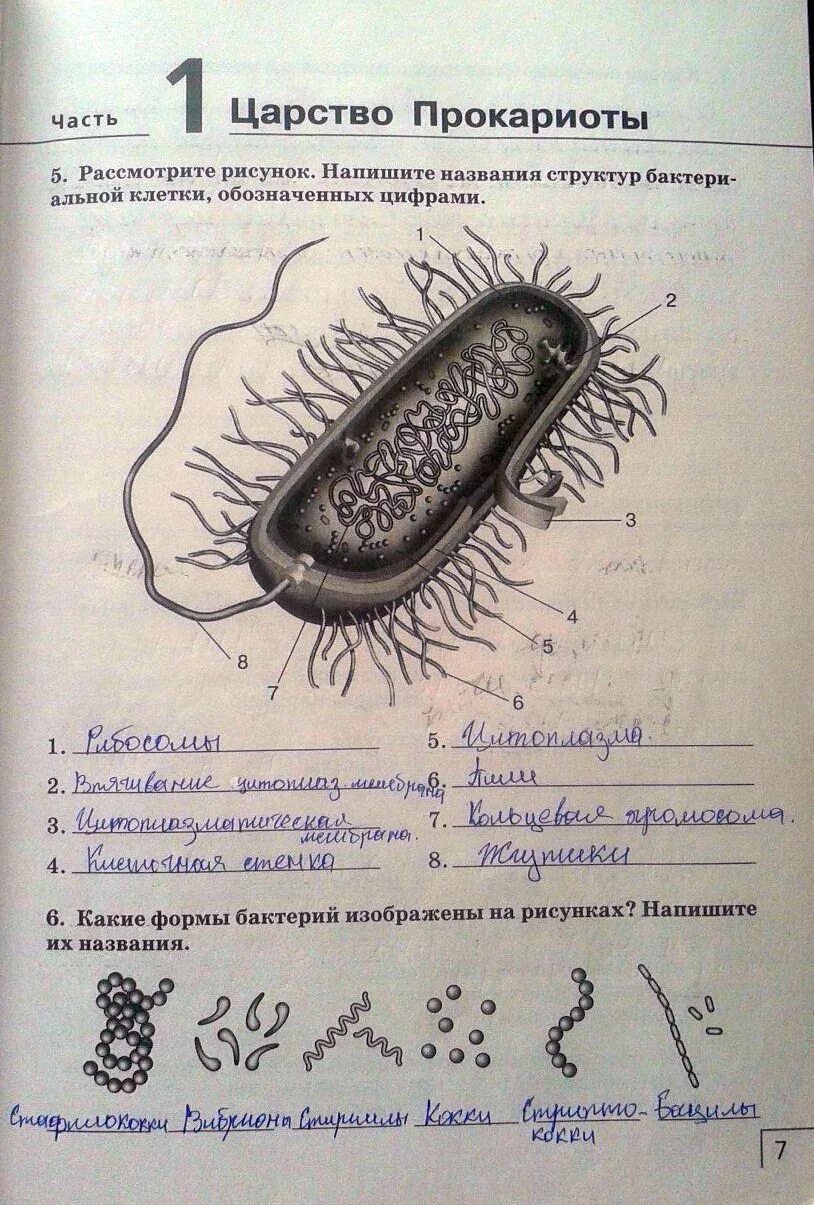 Часть 1 Царство Прокариоты
5. Рассмотрите рисунок. Напишите названия структур бактери-
альной клетки, обозначенных цифрами.
1
2
3
4
5
6
7
8
1. Рибосомы
2. Втягивание цитоплаз мембрана
3. Цитоплазматическая
мембрана.
4. Клеточная стенка
5. Цитоплазма.
6. Пили
7. Кольцевая хромосома.
8. Жгутики
6. Какие формы бактерий изображены на рисунках? Напишите
их названия.
Стафилококки Вибрионы Спириллы Кокки Стрипто-
кокки
Бацилы
7